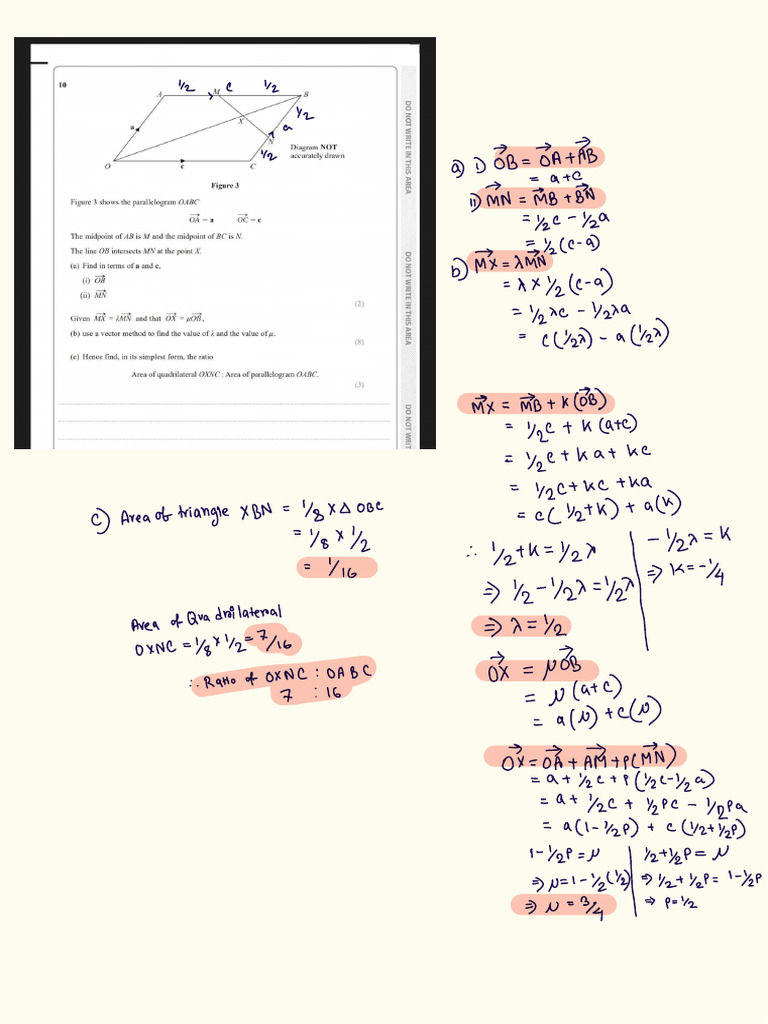 10
A
½
M
C
½
B
½
X
a
N
a
Diagram NOT
accurately drawn
½
O
c
C
Figure 3
Figure 3 shows the parallelogram OABC
OA→ = a OC→ = c
The midpoint of AB is M and the midpoint of BC is N.
The line OB intersects MN at the point X.
(a) Find in terms of a and c,
(i) OB→
(ii) MN→
(2)
Given MX→ = λMN→ and that OX→ = μOB→,
(b) use a vector method to find the value of λ and the value of μ.
(8)
(c) Hence find, in its simplest form, the ratio
Area of quadrilateral OXNC : Area of parallelogram OABC.
(3)
DO NOT WRITE IN THIS AREA
DO NOT WRITE IN THIS AREA
DO NOT WRIT
a) i) OB→ = OA→ + AB→
= a + c
ii) MN→ = MB→ + BN→
= ½c - ½a
= ½(c-a)
b) MX→ = λMN→
= λ × ½(c-a)
= ½λc - ½λa
= c(½λ) - a(½λ)
MX→ = MB→ + K(OB→)
= ½c + K(a+c)
= ½c + Ka + Kc
= ½c + Kc + Ka
= c(½+K) + a(K)
∴ ½+K = ½λ
-½λ = K
⇒ ½-½λ = ½λ
⇒ K = -¼
⇒ λ = ½
OX→ = μOB→
= μ(a+c)
= a(μ) + c(μ)
OX→ = OA→ + AM→ + P(MN→)
= a + ½c + P(½c-½a)
= a + ½c + ½Pc - ½Pa
= a(1-½P) + c(½+½P)
1-½P = μ
½+½P = μ
⇒ μ = 1-½(½)
⇒ ½+½P = 1-½P
⇒ μ = 3/4
⇒ P = ½
c) Area of triangle XBN = 1/8 × Δ OBC
= 1/8 × 1/2
= 1/16
Area of Quadrilateral
OXNC = 1/8 × 1/2 = 7/16
∴ Ratio of OXNC : OABC
7 : 16